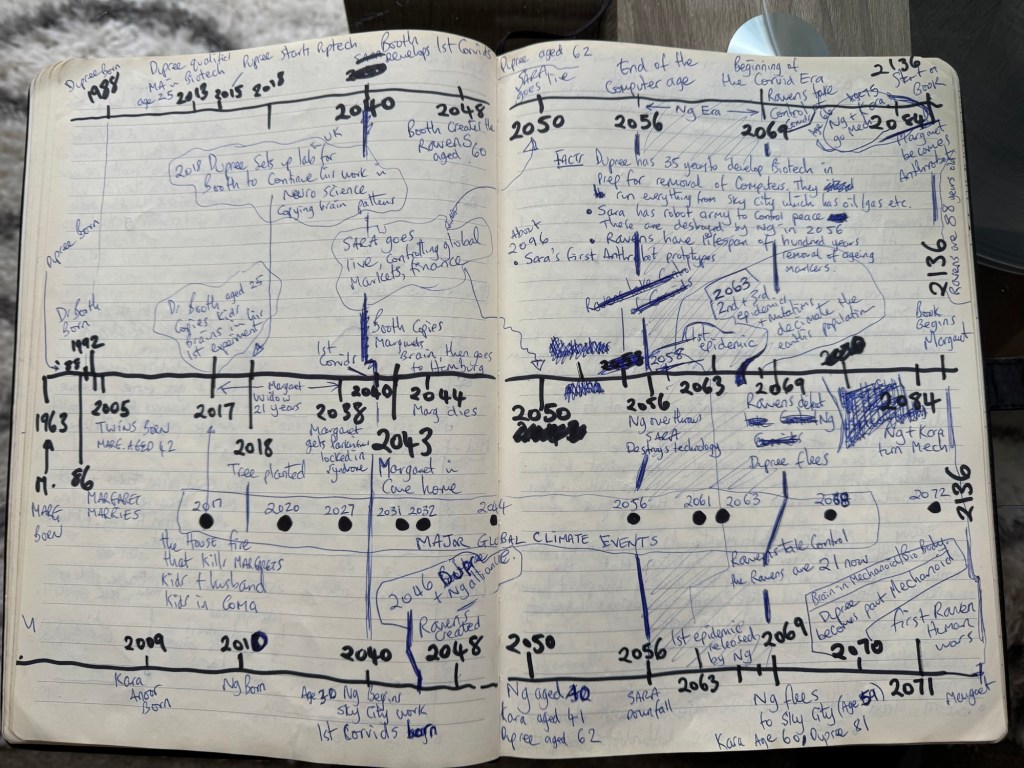 Dupree Born
1988
Dupree qualifies
MA in Biotech
age 25
2013
2015
Dupree starts Riptech
2018
Booth
Develops 1st Corvids
2040
2048
Booth Creates the
Ravens
aged 60
UK
2018 Dupree Sets up lab for
Booth to Continue his work in
Neuro Science
Copying brain patterns
SARA goes
live, controlling global
Markets, finance
Dupree Born
Dr Booth
Born
Dr Booth aged 25
Copies kids
brains in his
1st experiment
Booth Copies
Margarets
Brain, then goes
to Hamburg
1st
Corvids
1992
1963
M.
MARG
BORN
86
MARGARET
MARRIES
2005
TWINS BORN
MARG. AGED 42
2017
Margaret
Widow
21 years
2018
Tree planted
2038
Margaret
gets Parkinsons
locked in
syndrome
2040
2043
Margaret in
Care home
2044
Marg dies
2017
2020
2027
2031
2032
MAJOR GLOBAL CLIMATE EVENTS
the House fire
that kills MARGRETS
Kids + husband
Kids in COMA
2046 Dupree
+ Ng alliance
Ravens
created
2009
Kara
Born
2010
Ng Born
2040
Age 30 Ng begins
Sky City work
1st Corvids born
2048
Dupree aged 62
SARA
goes
Live
2050
End of the
Computer age
2056
Ng Era
Beginning of
the Corvid Era
2069
Ravens take
Control
2136
Start of
Book
2084
Ng + Kara
go Mech
Margaret
becomes
2136
Ravens are 88 years old
FACTS
Dupree has 35 years to develop Biotech in
prep for removal of Computers. They
run everything from Sky City which has oil/gas etc.
• Sara has robot army to control peace
These are destroyed by Ng in 2056
• Ravens have lifespan of hundred years
removal of ageing
markers.
About
2096
• Sara's first Anthrobot prototypes
2063
2nd + 3rd
epidemic
+ mutations
decimate the
earths population
1st
epidemic
Book
Begins
Margaret
2050
2056
Ng overthrow
SARA
Destroys technology
2058
2063
2069
Ravens
Ng
Dupree flees
2084
Ng + Kara
turn Mech
2136
2056
2061
2063
2072
Ravens take Control
the Ravens are 21 now
Brain in Mechanoid/Bio Body
Dupree
becomes part Mechanoid
first Raven
Human
wars
2050
Ng aged 40
Kara aged 41
Dupree aged 62
2056
SARA
Downfall
1st epidemic
released
by Ng
2063
2069
Ng flees
to Sky City (Age 59)
Kara Age 60, Dupree 81
2070
2071
Margaret